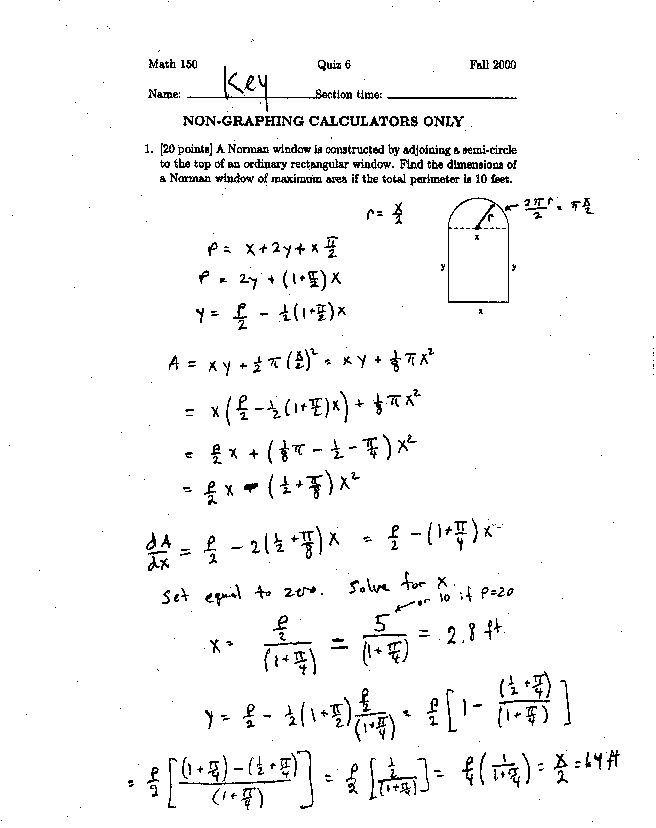 Math 150 Quiz 6 Fall 2000
Name: Key Section time:
NON-GRAPHING CALCULATORS ONLY
1. [20 points] A Norman window is constructed by adjoining a semi-circle
to the top of an ordinary rectangular window. Find the dimensions of
a Norman window of maximum area if the total perimeter is 10 feet.
r = x/2
r
2πr/2 = πx/2
x
y y
x
P = x + 2y + x π/2
P = 2y + (1+π/2)x
y = P/2 - 1/2(1+π/2)x
A = xy + 1/2 π(x/2)² = xy + 1/8 πx²
= x(P/2 - 1/2(1+π/2)x) + 1/8 πx²
= P/2 x + (1/8 π - 1/2 - π/4)x²
= P/2 x - (1/2 + π/8)x²
dA/dx = P/2 - 2(1/2 + π/8)x = P/2 - (1+π/4)x
Set equal to zero. Solve for x.
or 10 if P=20
x = (P/2)/(1+π/4) = 5/(1+π/4) = 2.8 ft
y = P/2 - 1/2(1+π/2) (P/2)/(1+π/4) = P/2 [1 - (1/2+π/4)/(1+π/4)]
= P/2 [((1+π/4)-(1/2+π/4))/(1+π/4)] = P/2 [(1/2)/(1+π/4)] = P/4 (1/(1+π/4)) = x/2 = 1.4 ft